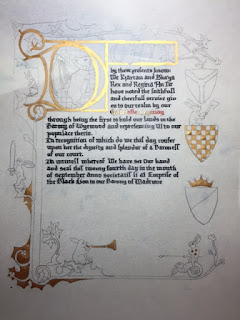 by these presents knowen
We Ktarran and Bhirga
Rex and Regina An Tir
have noted the faithfull
and cheerfull service giv-
en to our realm by our
through being the first to hold our lands in the
Barony of Wyewood and representing Us to our
populace there.
In recognition of which do we this day confer
upon her the dignity and splendor of a Baroness
of our court.
In witness whereof We have set Our hand
and seal this twenty fourth day in the month
of september anno societatis
the Black Lion in our Barony of Madrone